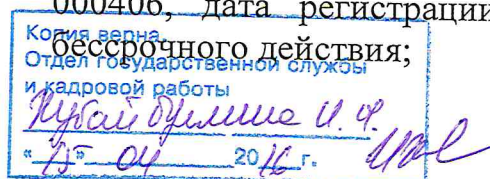 000406, дата регистрации
бессрочного действия;
Копия верна
Отдел государственной службы
и кадровой работы
И. Ф.
"15" 04 2016 г.